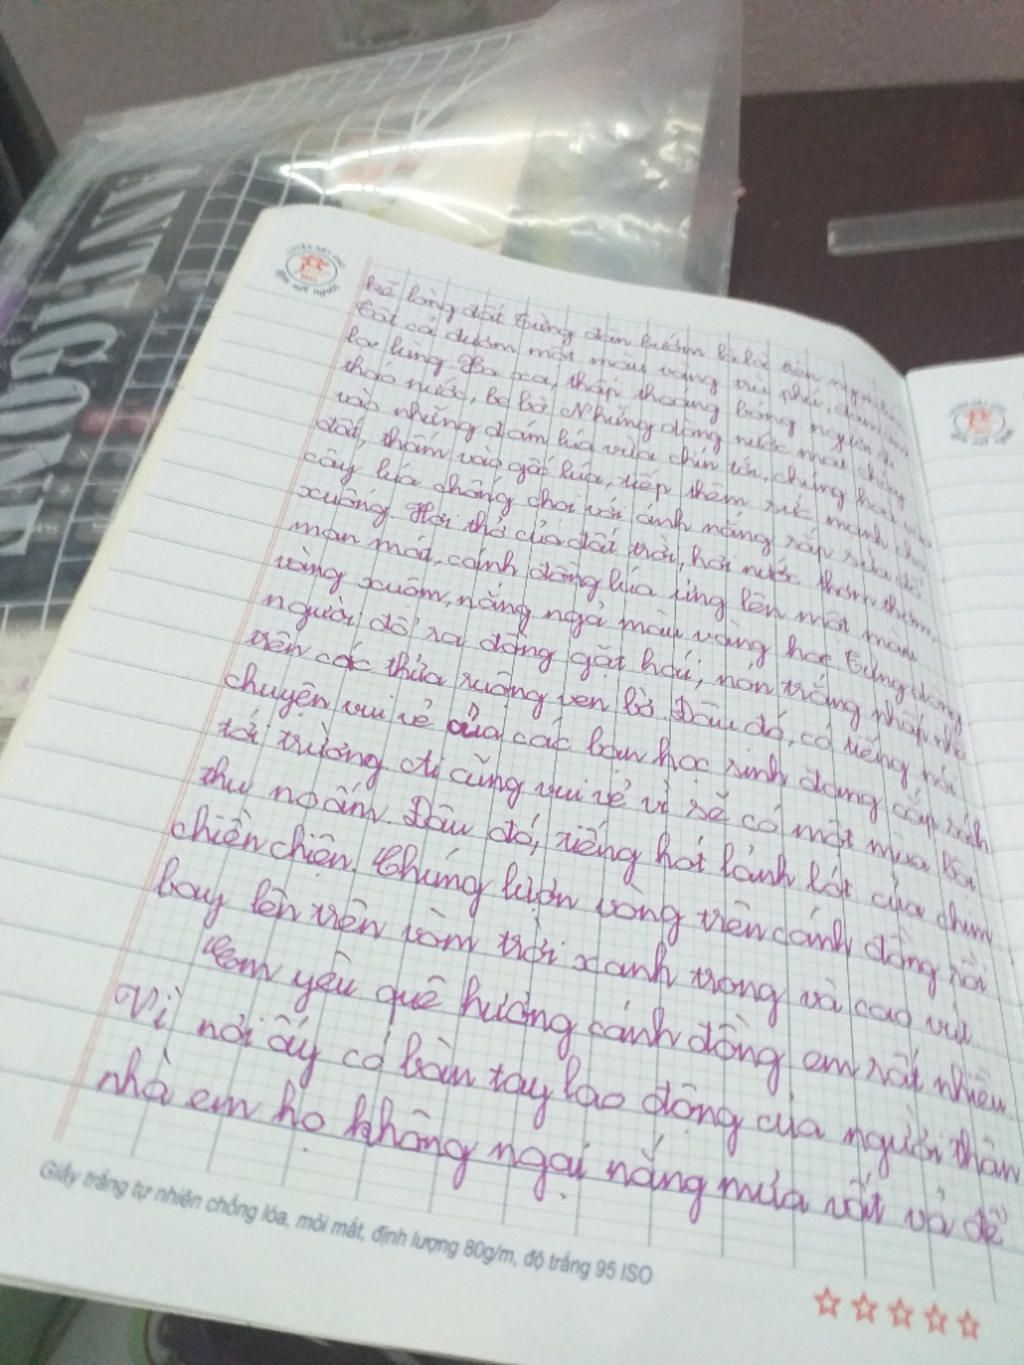 lòng đất từng đàn bướm
Tất cả đượm một màu vàng trù phú, đầm ấm
lạ lùng. Xa xa, thấp thoáng bóng người đi
tháo nước, be bờ. Những dòng nước mát chảy
vào những đám lúa vừa chín tới, chúng hoà vào
đất, thấm vào gốc lúa, tiếp thêm sức mạnh cho
cây lúa chống chọi với ánh nắng sắp sửa đổ
xuống. Hơi thở của đất trời, hơi nước thơm thơm,
man mát, cánh đồng lúa ửng lên một màu
vàng xuộm, nắng ngả màu vàng hoe
người đổ ra đồng gặt hái, nón trắng nhấp nhô
trên các thửa ruộng ven bờ. Đâu đó, có tiếng nói
chuyện vui vẻ của các bạn học sinh đang cắp sách
tới trường. Ai cũng vui vẻ vì sẽ có một mùa bội
thu no ấm. Đâu đó, tiếng hót lảnh lót của chim
chiền chiện. Chúng lượn vòng trên cánh đồng rồi
bay lên trên vòm trời xanh trong và cao vút
Em yêu quê hương cánh đồng em rất nhiều
Vì nơi ấy có bàn tay lao động của người thân
nhà em họ không ngại nắng mưa vất vả để
Giấy trắng tự nhiên chống lóa, mỏi mắt, định lượng 80g/m, độ trắng 95 ISO